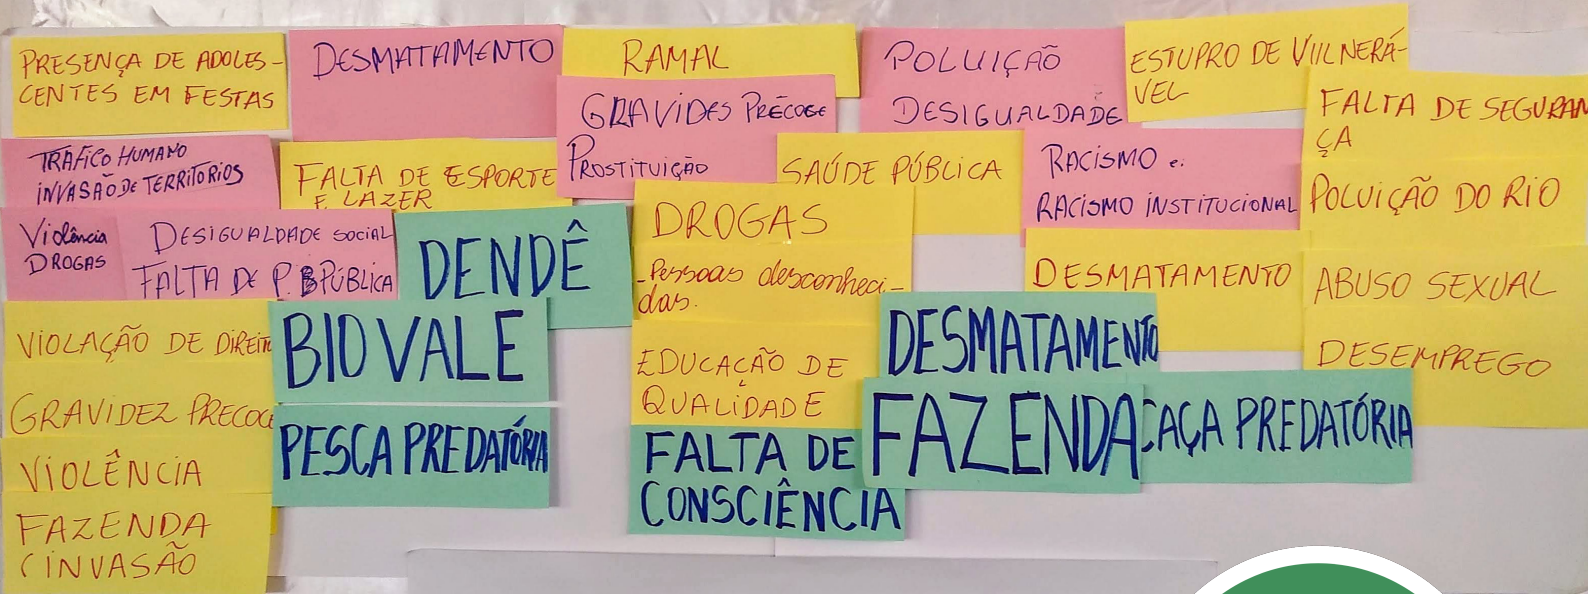 PRESENÇA DE ADOLES-
CENTES EM FESTAS
DESMATAMENTO
RAMAL
POLUIÇÃO
DESIGUALDADE
ESTUPRO DE VULNERÁ-
VEL
GRAVIDES PRÉCOCE
PROSTITUIÇÃO
FALTA DE SEGURAN
ÇA
TRÁFICO HUMANO
INVASÃO DE TERRITORIOS
FALTA DE ESPORTE
E LAZER
SAÚDE PÚBLICA
RACISMO e.
RACISMO INSTITUCIONAL
POLUIÇÃO DO RIO
Violência
DROGAS
DESIGUALDADE SOCIAL
FALTA DE P. PÚBLICA
DENDÊ
DROGAS
-Pessoas desconheci-
das.
DESMATAMENTO
ABUSO SEXUAL
VIOLAÇÃO DE DIREITO
BIOVALE
EDUCAÇÃO DE
QUALIDADE
DESMATAMENTO
DESEMPREGO
GRAVIDEZ PRECOCE
PESCA PREDATÓRIA
FALTA DE
CONSCIÊNCIA
FAZENDA
CAÇA PREDATÓRIA
VIOLÊNCIA
FAZENDA
(INVASÃO